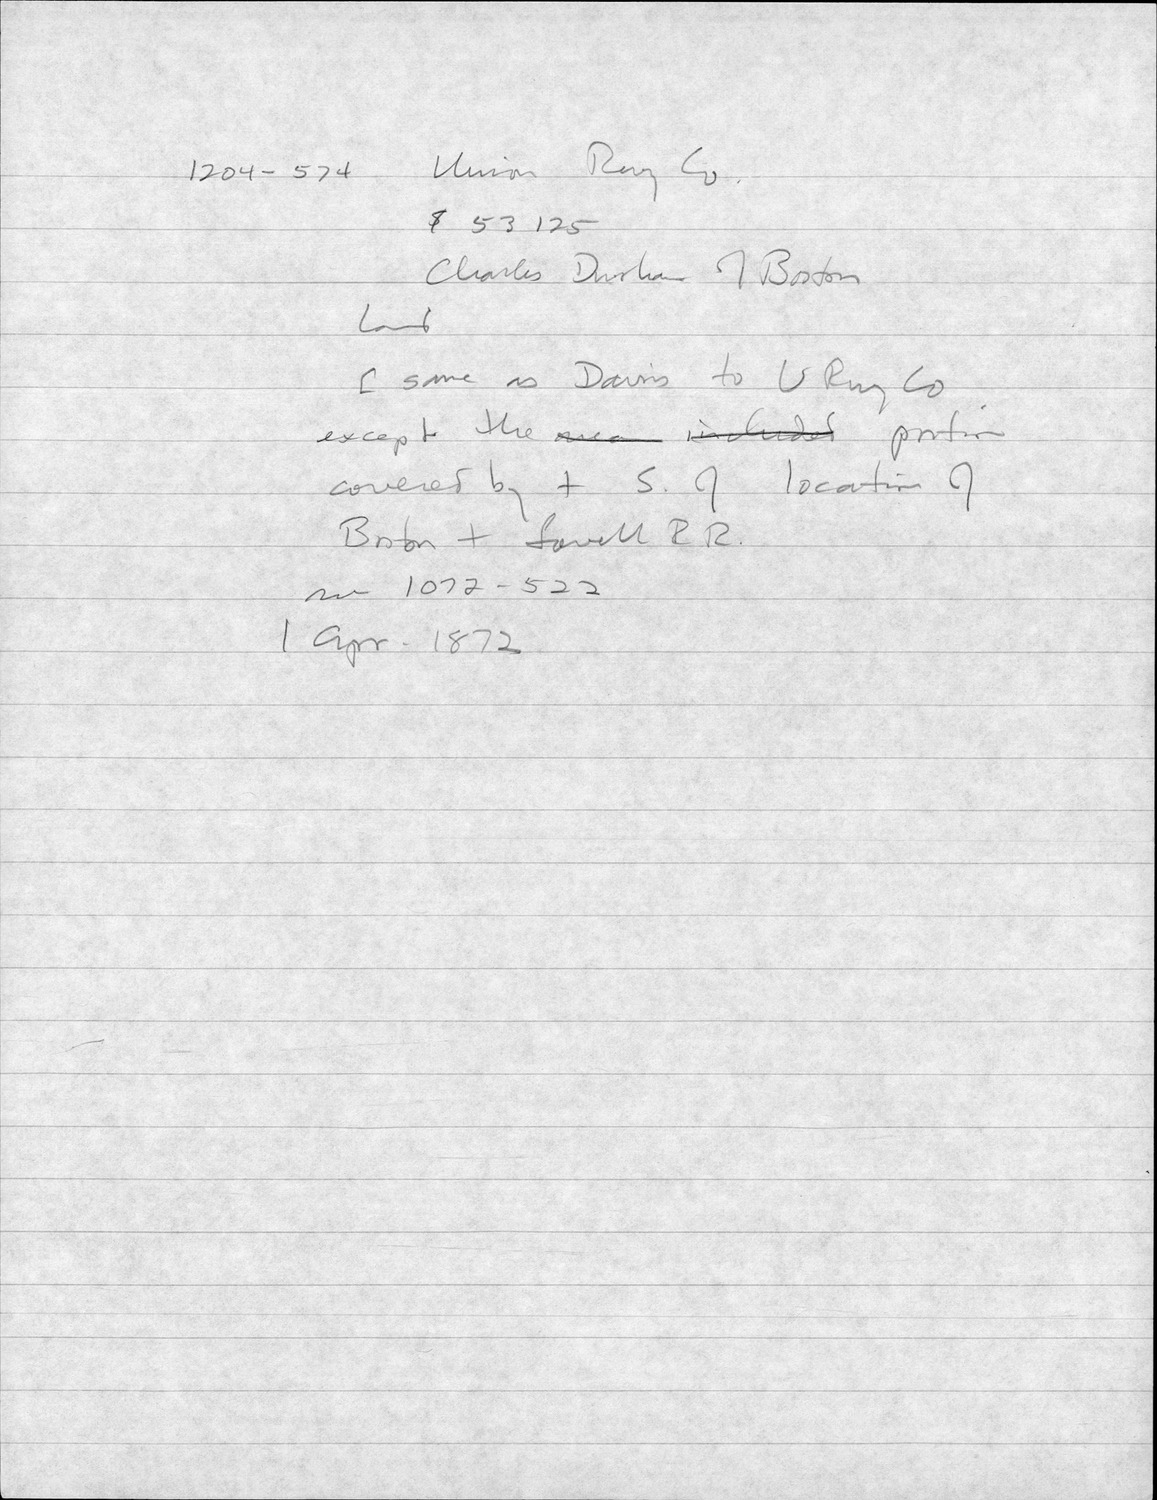 1204-574 Union Rwy Co.
$ 53 125
Charles Durham of Boston
Land
[ same as Davis to U Rwy Co.
except the area included portion
covered by + S. of location of
Boston + Lowell R R.
see 1072-522
1 Apr. 1872